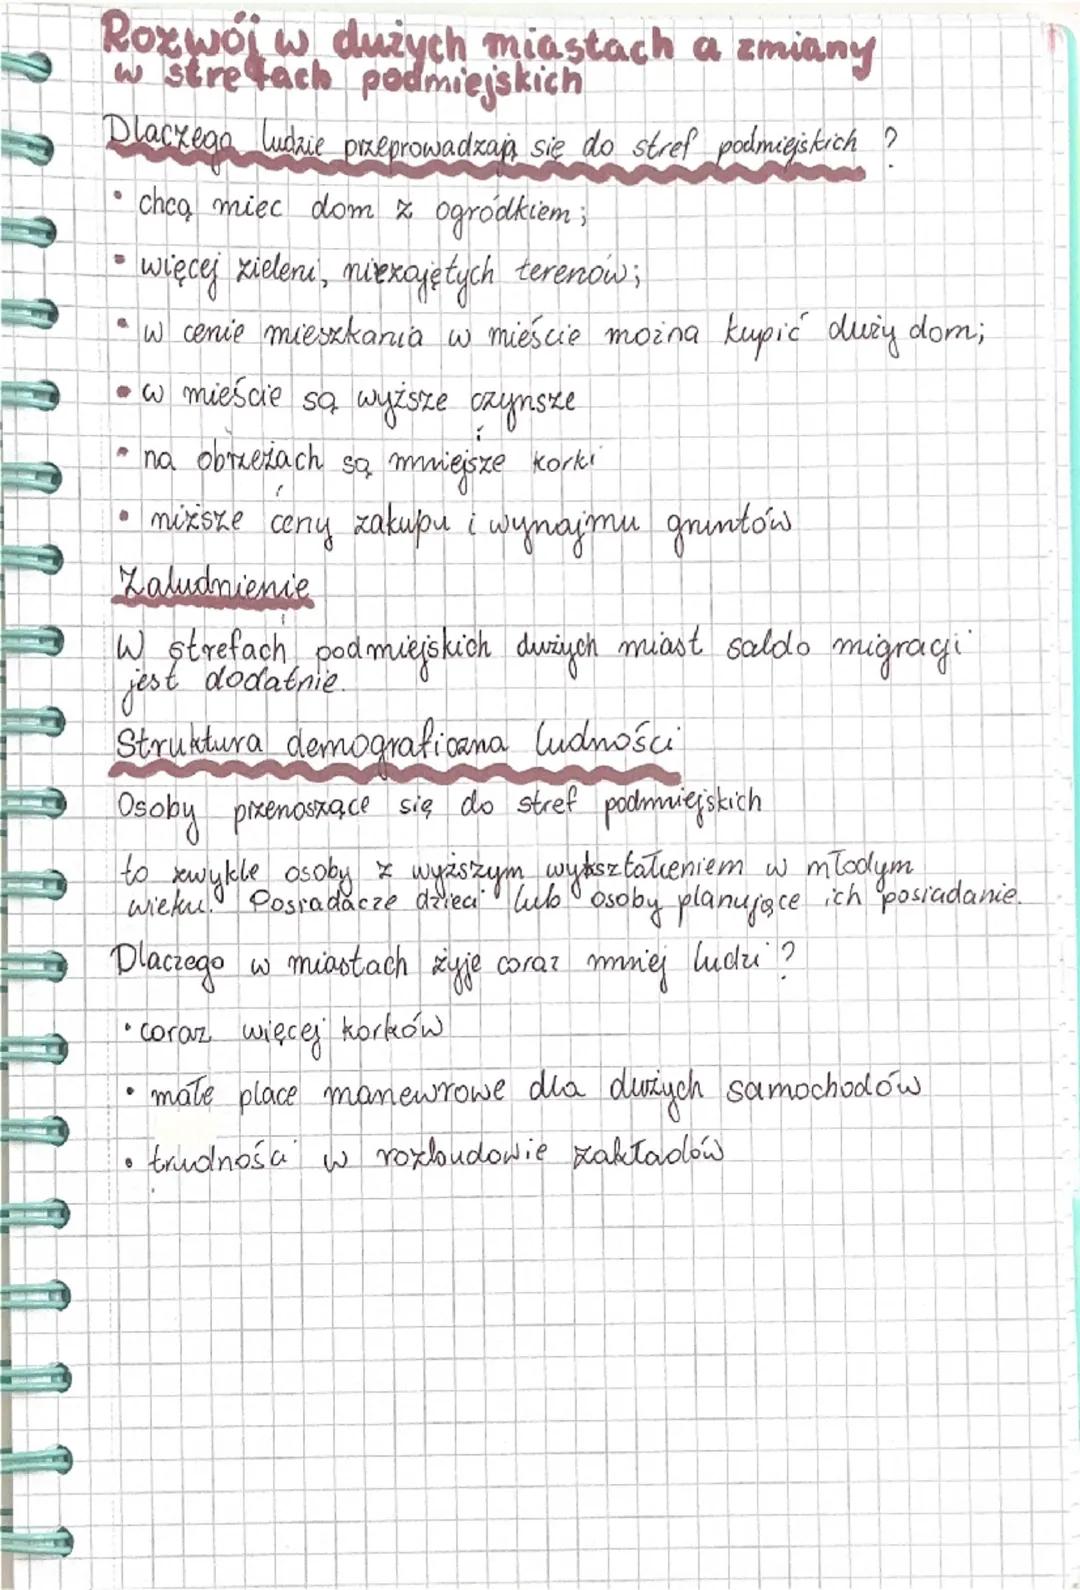 Rozwój w dużych miastach a zmiany
w strefach podmiejskich
Dlaczego ludzie przeprowadzają się do stref podmiejskich ?
• chcą miec dom z ogródkiem;
• więcej zieleni, niezajętych terenów;
• w cenie mieszkania w mieście można kupić duży dom;
• w mieście są wyższe czynsze
• na obrzeżach są mniejsze korki
• niższe ceny zakupu i wynajmu gruntów
Zaludnienie
W strefach podmiejskich dużych miast saldo migracji
jest dodatnie.
Struktura demograficzna ludności
Osoby przenoszące się do stref podmiejskich
to zwykle osoby z wyższym wykształceniem w młodym
wieku. Posiadacze dzieci lub osoby planujące ich posiadanie.
Dlaczego w miastach żyje coraz mniej ludzi ?
• coraz więcej korków
• małe place manewrowe dla dużych samochodów
• trudności w rozbudowie zakładów